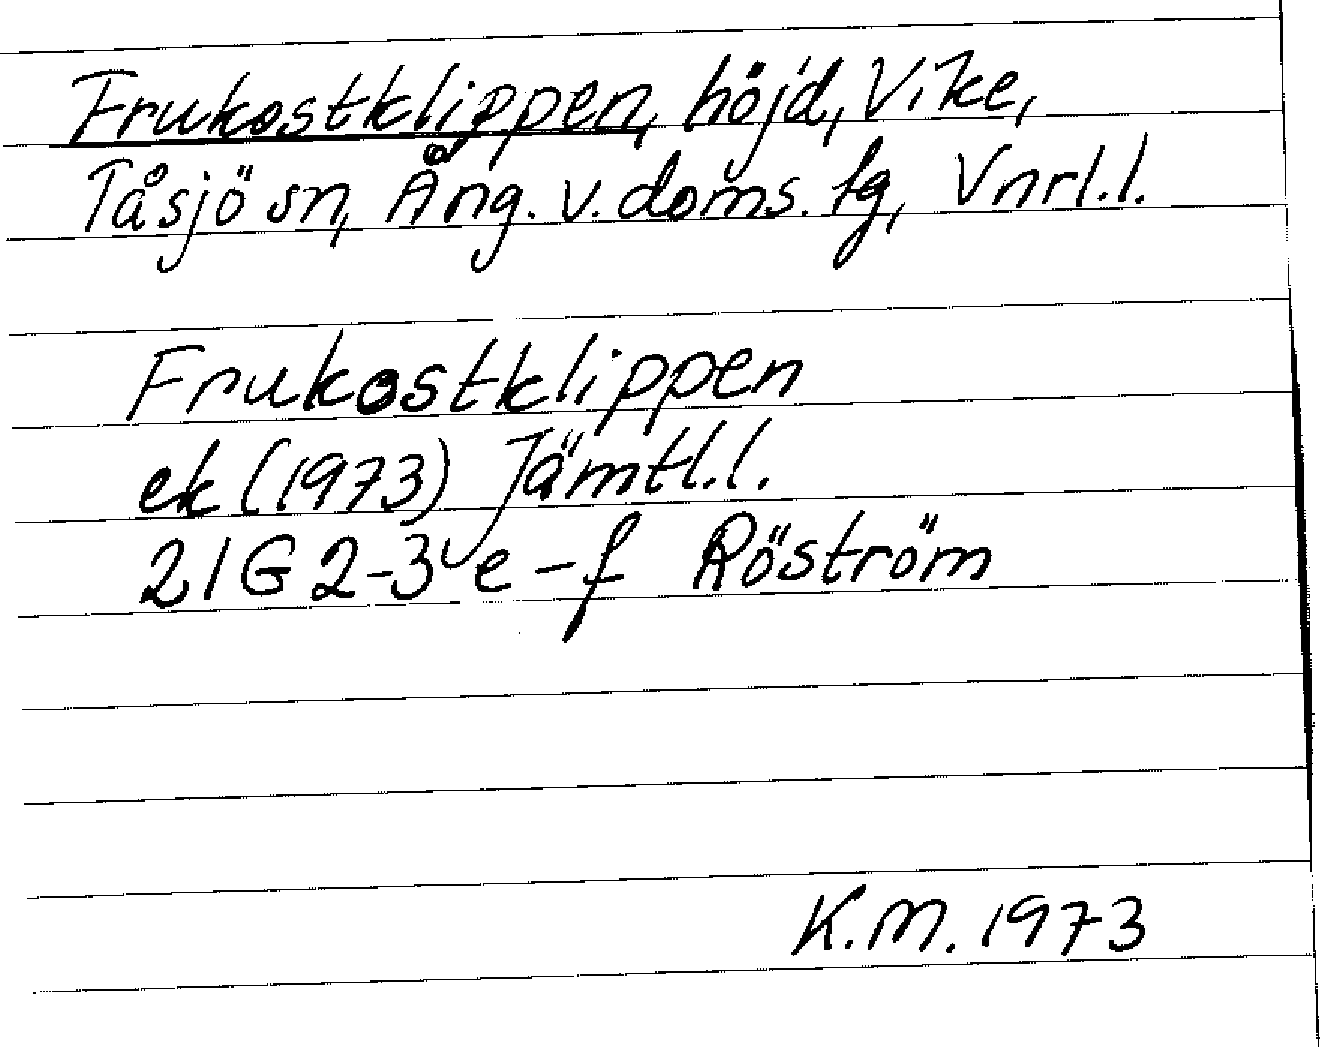 Frukostklippen, höjd, Vike,
Tåsjö sn, Ång. v. doms. fg, Vnrl.l.
Frukostklippen
ek (1973) Jämtl.l.
21G 2-3 e-f Röström
K.M. 1973